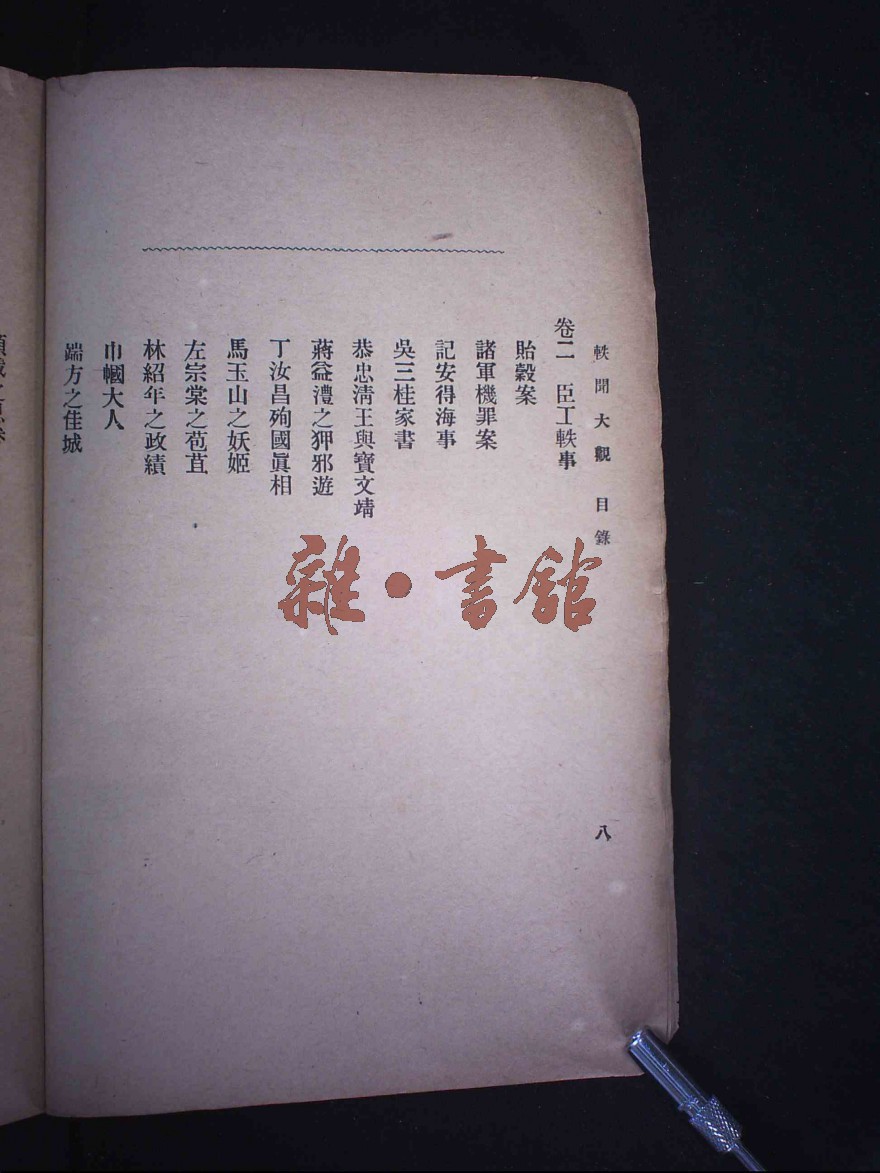 軼聞大觀 目錄
八
卷二 臣工軼事
貽穀案
諸軍機罪案
記安得海事
吳三桂家書
恭忠清王與寶文靖
蔣益澧之狎邪遊
丁汝昌殉國眞相
馬玉山之妖姬
左宗棠之苞苴
林紹年之政績
巾幗大人
端方之佳城
雜·書舘